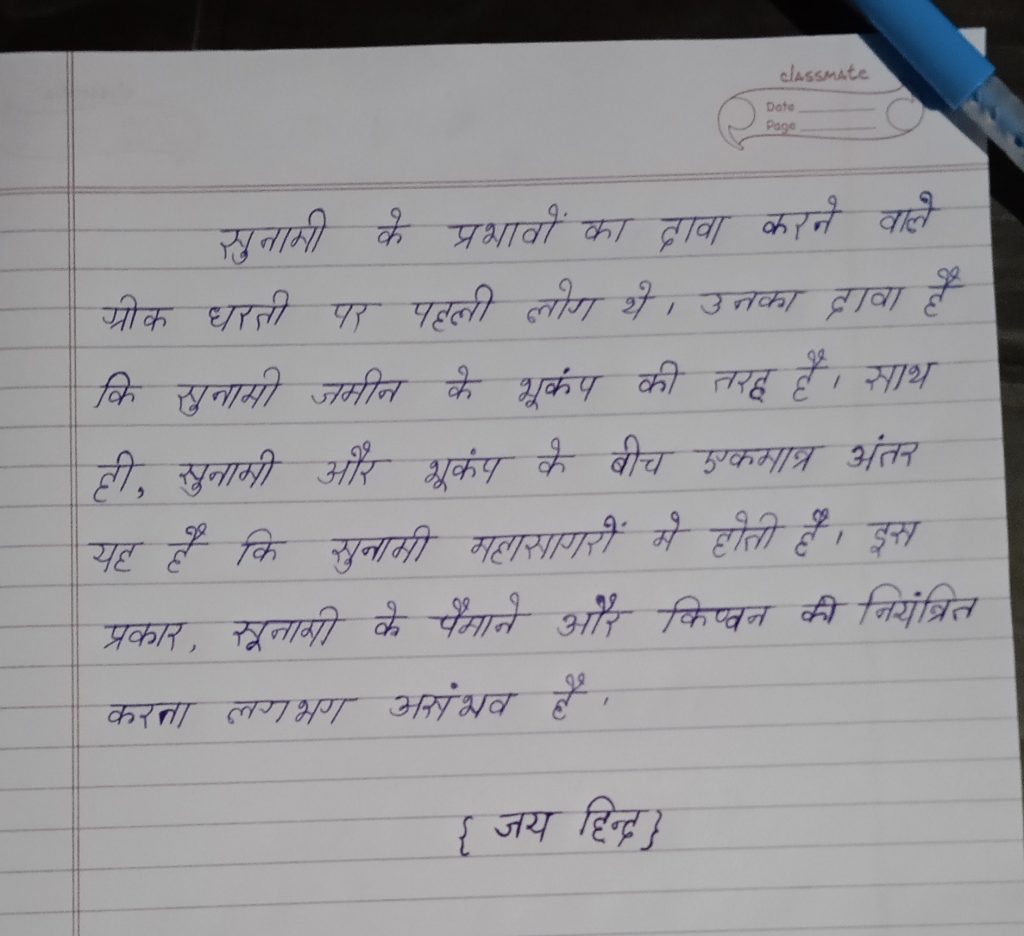 classmate
Date
Page
सुनामी के प्रभावों का दावा करने वाले
ग्रीक धरती पर पहली लोग थे। उनका दावा है
कि सुनामी जमीन के भूकंप की तरह है। साथ
ही, सुनामी और भूकंप के बीच एकमात्र अंतर
यह है कि सुनामी महासागरों मे होती है। इस
प्रकार, सूनामी के पैमाने और किण्वन की नियंत्रित
करना लगभग असंभव है।
{ जय हिन्द }